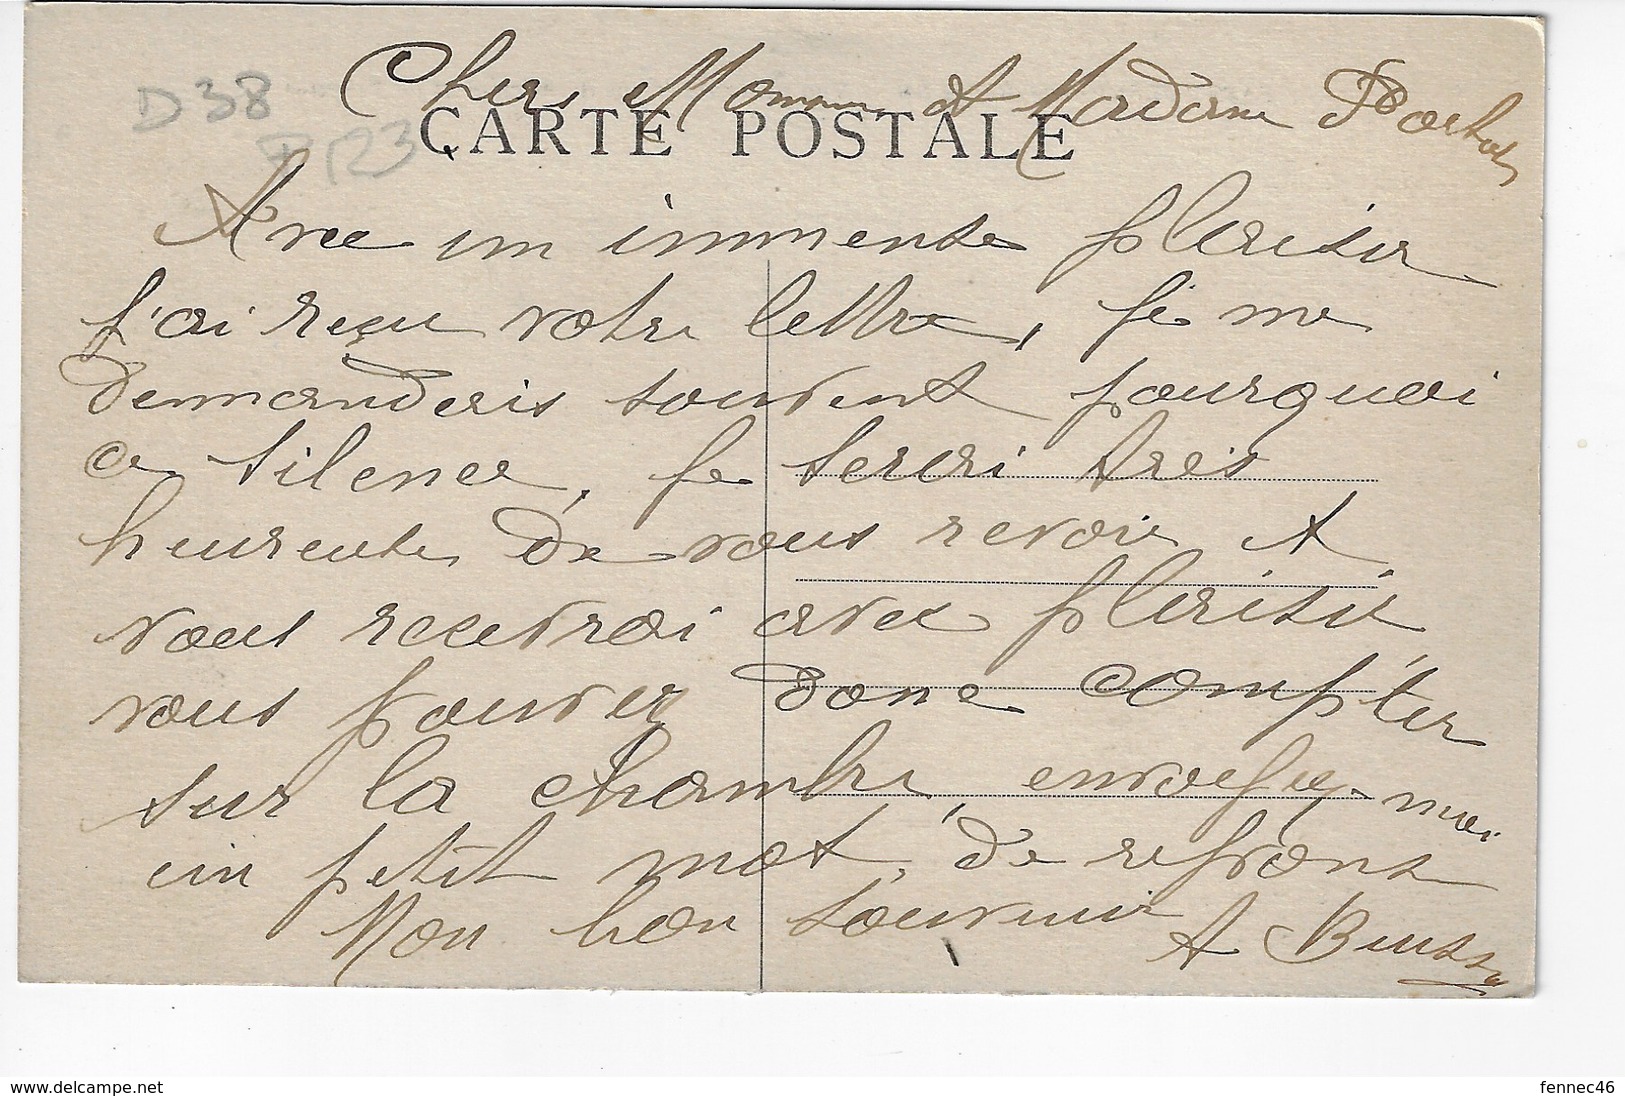 Chers Monsieur et Madame
D 38
123
CARTE POSTALE
Avec un immense plaisir
j'ai reçu votre lettre, je me
demanderis souvent pourquoi
ce silence, je serai très
heureuse de vous revoir et
vous recevrai avec plaisir
vous pouvez donc compter
sur la chambre, envoyez-moi
un petit mot, de repons
Mon bon souvenir
A Busse
www.delcampe.net
fennec46